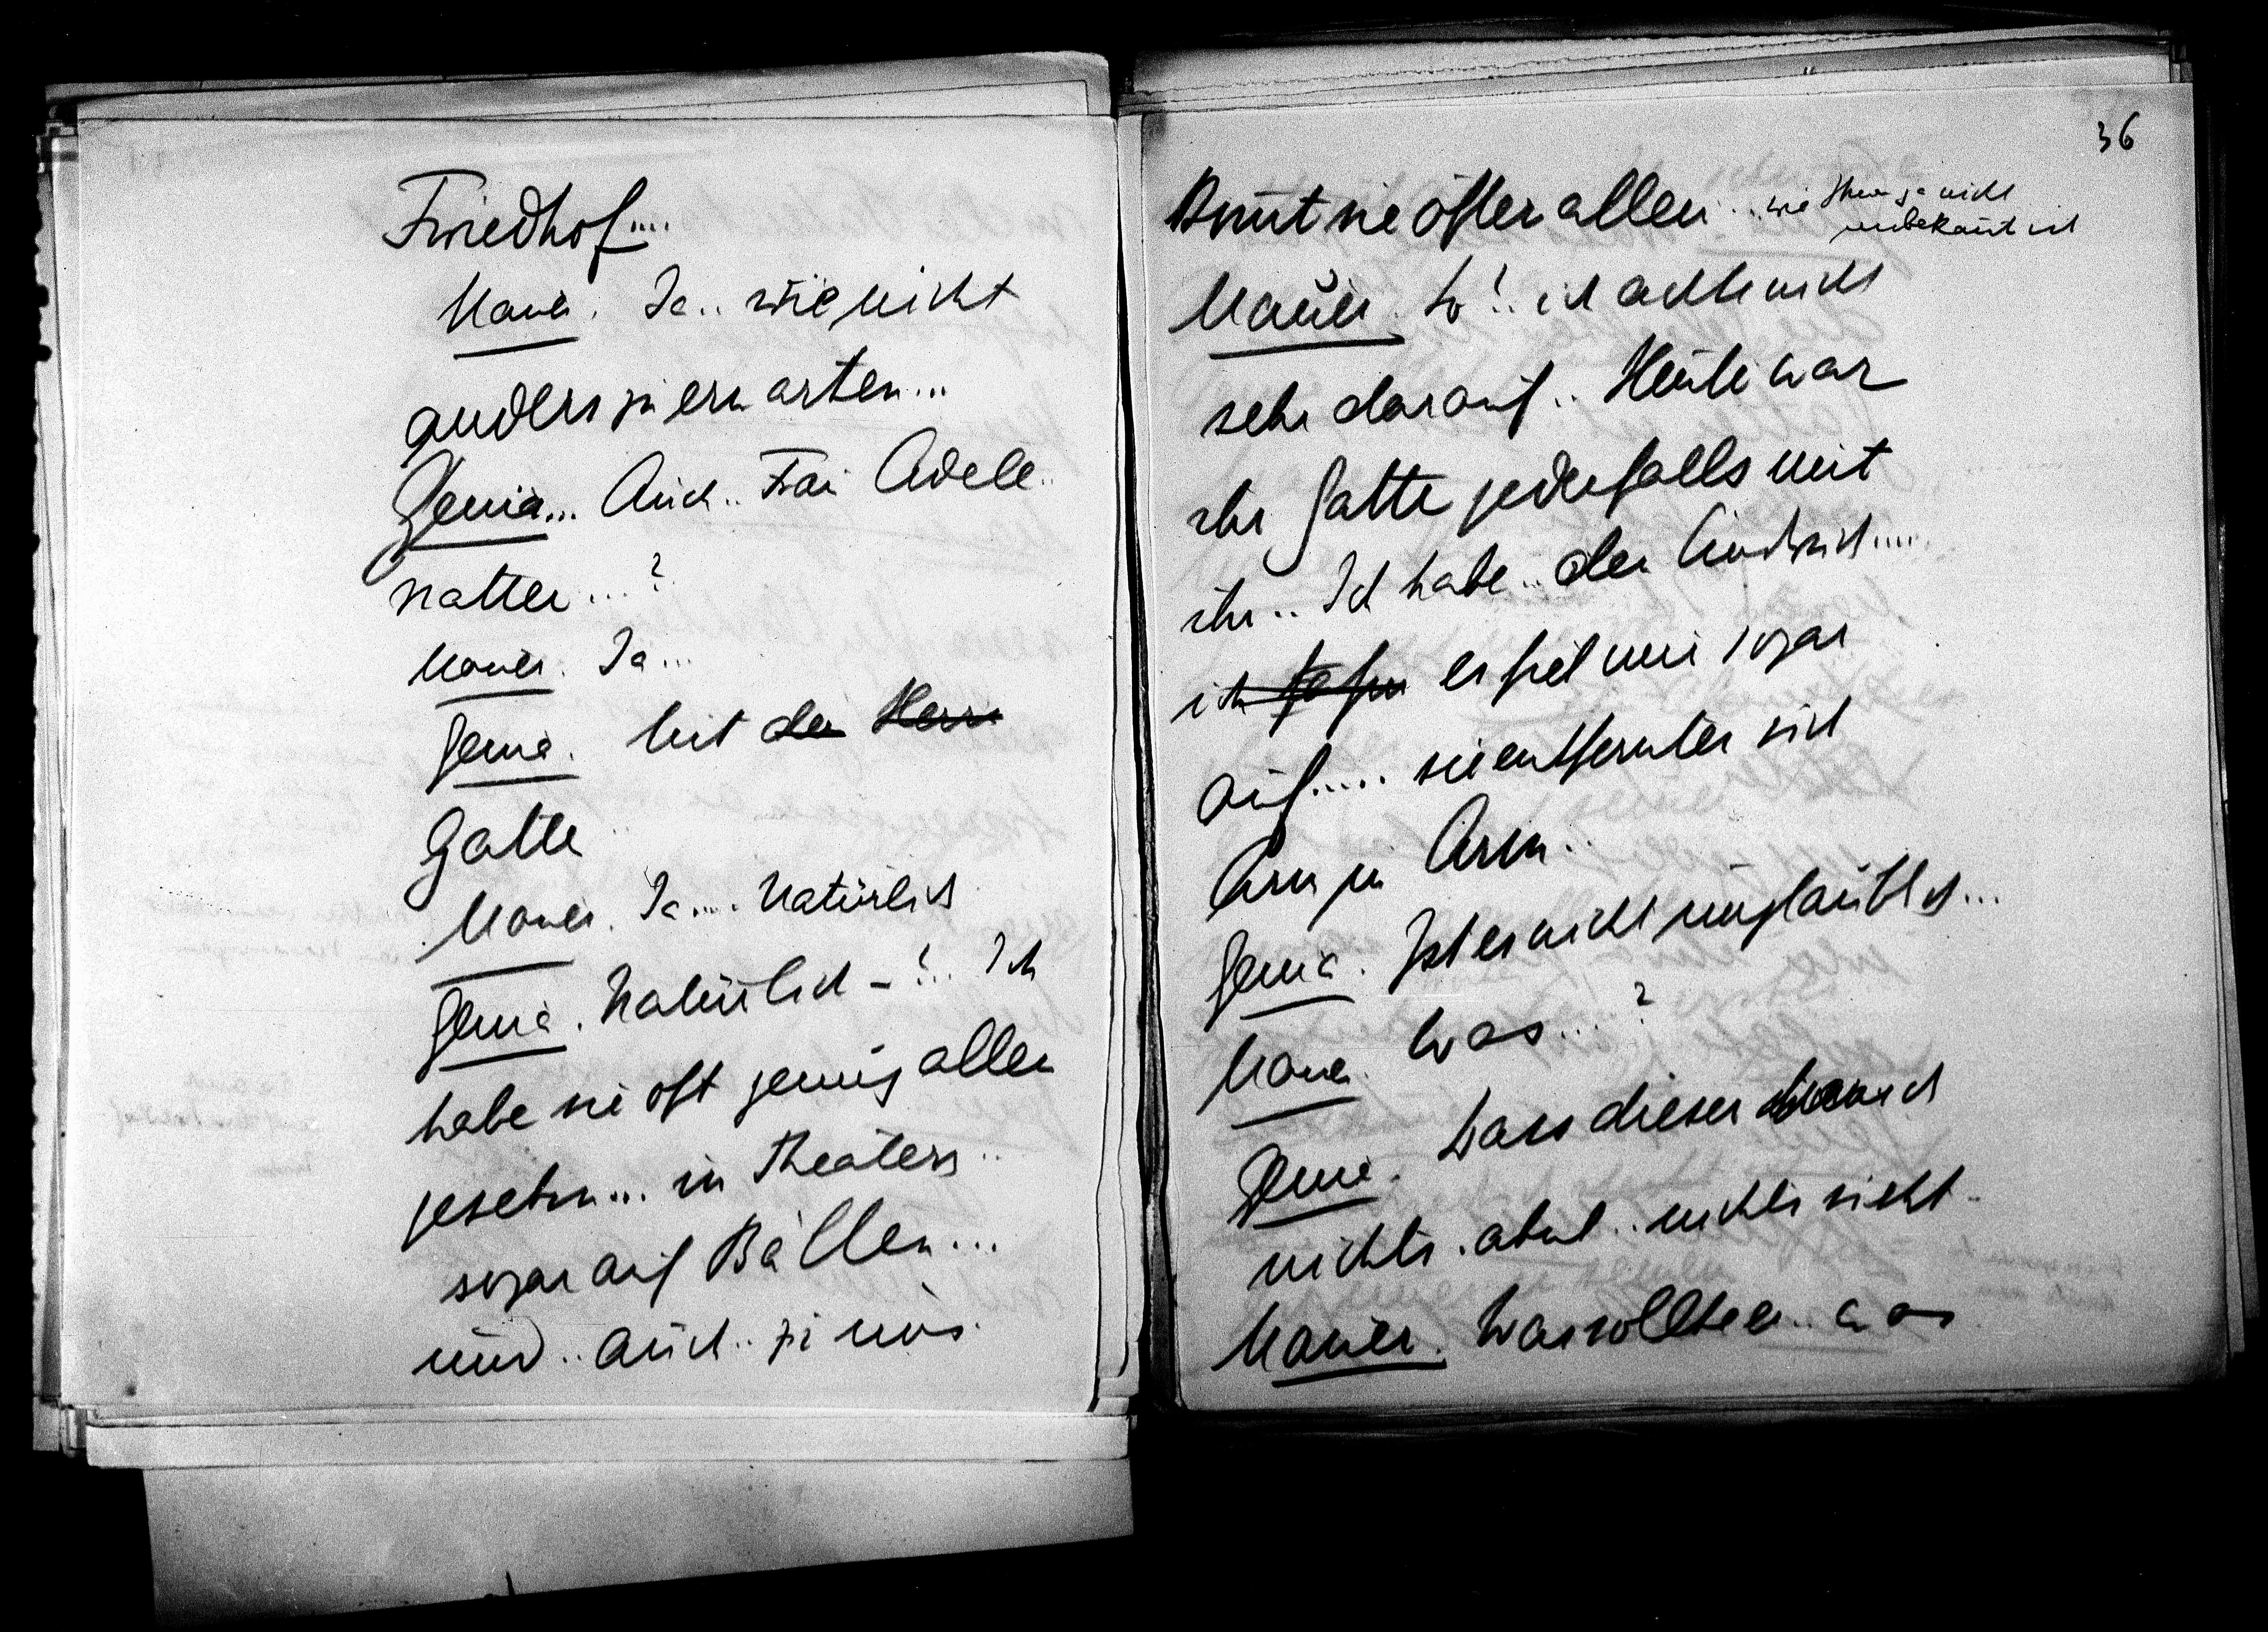 Friedhof....
Mauer. Ja.. wie nicht
anders zu erwarten...
Genia... Auch.. Frau Adele..
Natter...?
Mauer. Ja...
Genia. Mit dem Herrn
Gatten
Mauer. Ja.... Natürlich
Genia. Natürlich –!.. Ich
habe sie oft genug allein
gesehn... in Theatern..
sogar auf Bällen...
und.. auch.. zu uns.
36
kommt sie öfter allein ... wie Ihnen ja nicht
unbekannt ist
Mauer. So!.. ich achte nicht
sehr darauf.. Heute war
ihr Gatte jedenfalls mit
ihr.. Ich habe.. den Eindruck....
ich es fiel mir sogar
auf..... sie entfernten sich
Arm in Arm..
Genia. Ist es nicht unglaublich...
Mauer. Was...?
Genia. Dass dieser Mensch
nichts. ahnt.. nichts sieht.
Mauer. Was sollte er.. was